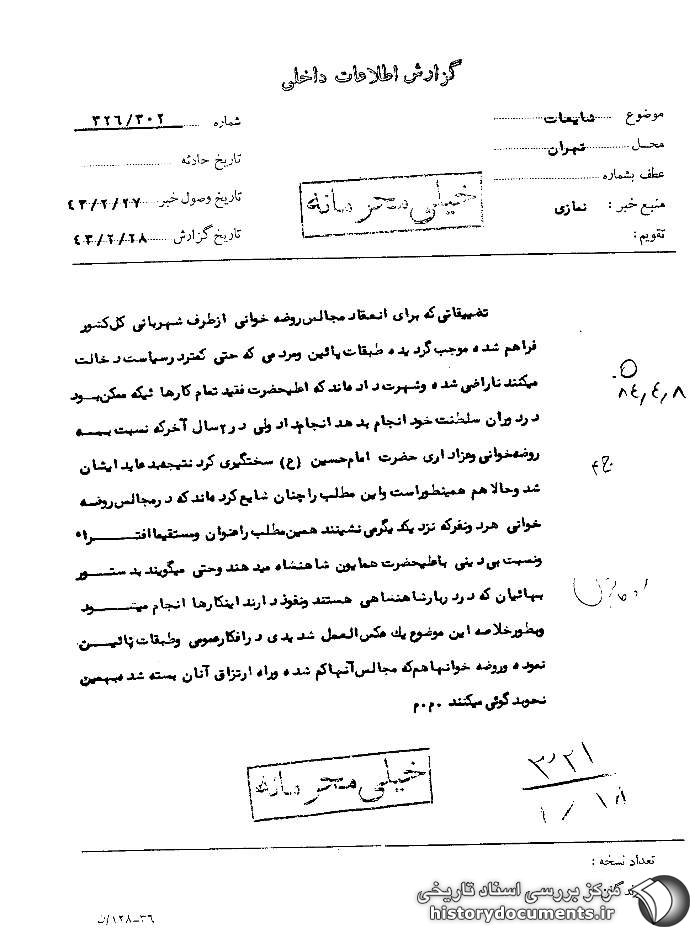 گزارش اطلاعات داخلی
موضوع شایعات
شماره ۳۲۶/۳۰۲
محل تهران
تاریخ حادثه
عطف بشماره
تاریخ وصول خبر ۴۳/۲/۲۷
منبع خبر : نمازی
تاریخ گزارش ۴۳/۲/۲۸
تقویم :
خیلی محرمانه
تضییقاتی که برای انعقاد مجالس روضه خوانی ازطرف شهربانی کل کشور
فراهم شده موجب گردیده طبقات پائین ومردمی که حتی کمتردرسیاست دخالت
میکنند ناراضی شده وشهرت داده‌اند که اعلیحضرت فقید تمام کارهائیکه ممکن بود
دردوران سلطنت خود انجام بدهد انجام داد ولی در ۲ سال آخرکه نسبت بـــه
روضه خوانی وعزاداری حضرت امام حسین (ع) سختگیری کرد نتیجه بدعاید ایشان
شد وحالا هم همینطوراست واین مطلب راچنان شایع کرده‌اند که درمجالس روضه
خوانی هردونفرکه نزد یکدیگرمی نشینند همین مطلب راعنوان ومستقیما افتـــراء
ونسبت بی دینی باعلیحضرت همایون شاهنشاه میدهند وحتی میگویند بدستـــور
بهائیان که دردربارشاهنشاهی هستند ونفوذ دارند اینکارها انجام میشـــود
وبطورخلاصه این موضوع یك عکس‌العمل شدیدی درافکارعمومی وطبقات پائیـــن
نموده وروضه خوانهاهم‌که مجالس آنهاکم شده وراه ارتزاق آنان بسته شده بهمین
نحوبدگوئی میکنند ۰م۰م
۸۴٫۴٫۸
خیلی محرمانه
۳٫۲۱
تعداد نسخه :
۳۶-۱۲۸/ن
مرکز بررسی اسناد تاریخی
historydocuments.ir